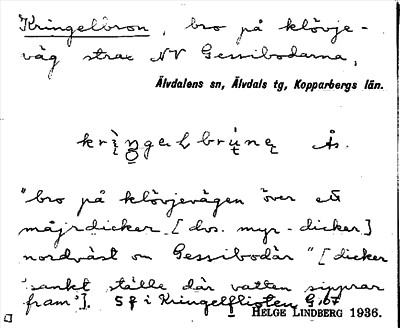 Kringelbron, bro på klövje-
väg strax NV Gessibodarna,
Älvdalens sn, Älvdals tg, Kopparbergs län.
Ås.
"bro på klövjevägen över ett
måjrdicker [dvs. myr-dicker]
nordväst om Gessibodär" [dicker
'sankt ställe där vatten sipprar
fram']. 5 f i Kringelflisten G. 67
HELGE LINDBERG 1936.